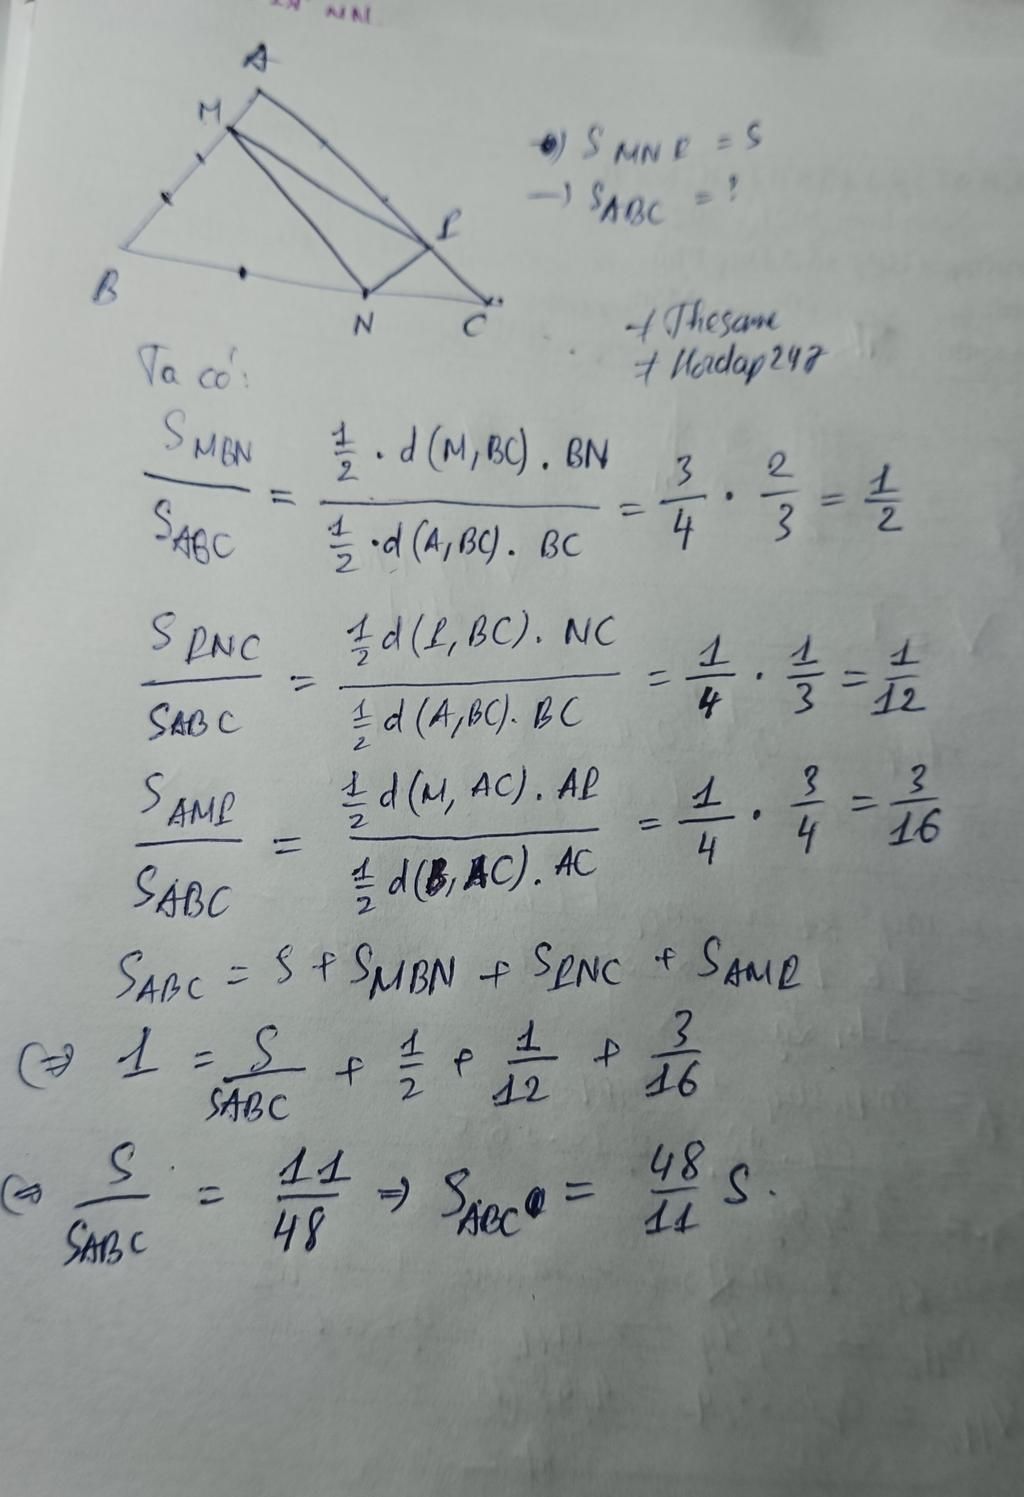 MN.
A
M
P
B
N
C
→) S MNP = S
→) S ABC = ?
+ Thesame
+ Hoidap247
Ta có:
S MBN / S ABC = (1/2 . d(M,BC) . BN) / (1/2 . d(A,BC) . BC) = 3/4 . 2/3 = 1/2
S PNC / S ABC = (1/2 d(P,BC) . NC) / (1/2 d(A,BC) . BC) = 1/4 . 1/3 = 1/12
S AMP / S ABC = (1/2 d(M, AC) . AP) / (1/2 d(B, AC) . AC) = 1/4 . 3/4 = 3/16
S ABC = S + S MBN + S PNC + S AMP
(⇒ 1 = S / S ABC + 1/2 + 1/12 + 3/16
(⇒ S / S ABC = 11/48 ⇒ S ABC = 48/11 S.